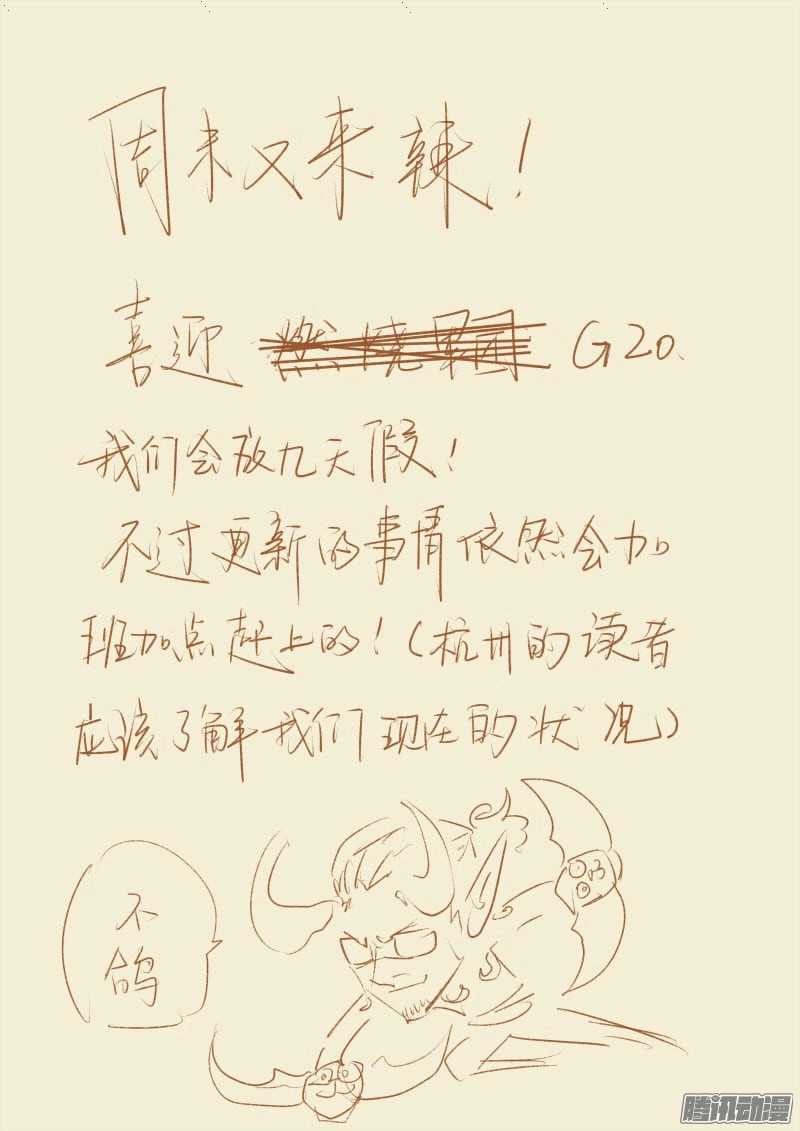 周末又来辣！
喜迎燃烧军团G20、
我们会放九天假！
不过更新的事情依然会加
班加点赶上的！（杭州的读者
应该了解我们现在的状况）
不
鸽
腾讯动漫